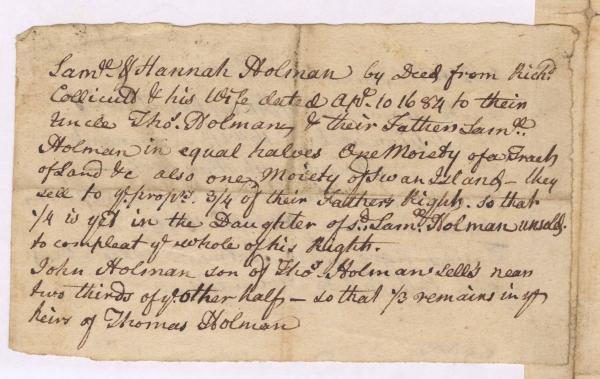 Saml. & Hannah Holman by Deed from Richd.
Collicutt & his Wife dated Apl. 10 1684 to their
Uncle Thos. Holman, & their Father Saml.
Holman in equal halves One Moiety of a Tract
of Land &c also one Moiety of Swan Island – they
sell to ye. proprs. 3/4 of their Fathers Right. so that
1/4 is yet in the Daughter of sd. Saml. Holman unsold.
to compleat ye whole of his Right.
John Holman son of Thos. Holman sells near
two thirds of ye. other half – so that 1/3 remains in ye
heirs of Thomas Holman